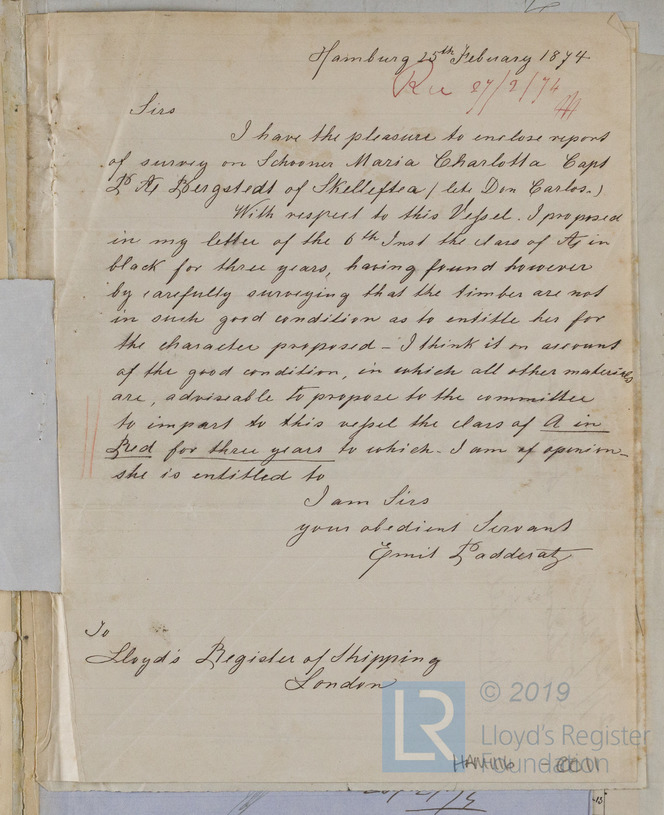 Hamburg 25th February 1874
Rec 27/2/74
Sirs
I have the pleasure to enclose report
of survey on Schooner Maria Charlotta Capt
P A Bergstedt of Skelleftea (late Don Carlos.)
With respect to this Vessel. I proposed
in my letter of the 6th Inst the class of A in
black for three years, having found however
by carefully surveying that the timber are not
in such good condition as to entitle her for
the character proposed - I think it on account
of the good condition, in which all other materials
are, adviseable to propose to the committee
to impart to this vessel the class of A in
Red for three years to which - I am of opinion -
she is entitled to
I am Sirs
your obedient Servant
Emil Padderatz
To
Lloyd's Register of Shipping
London
LR
© 2019
Lloyd's Register
Foundation